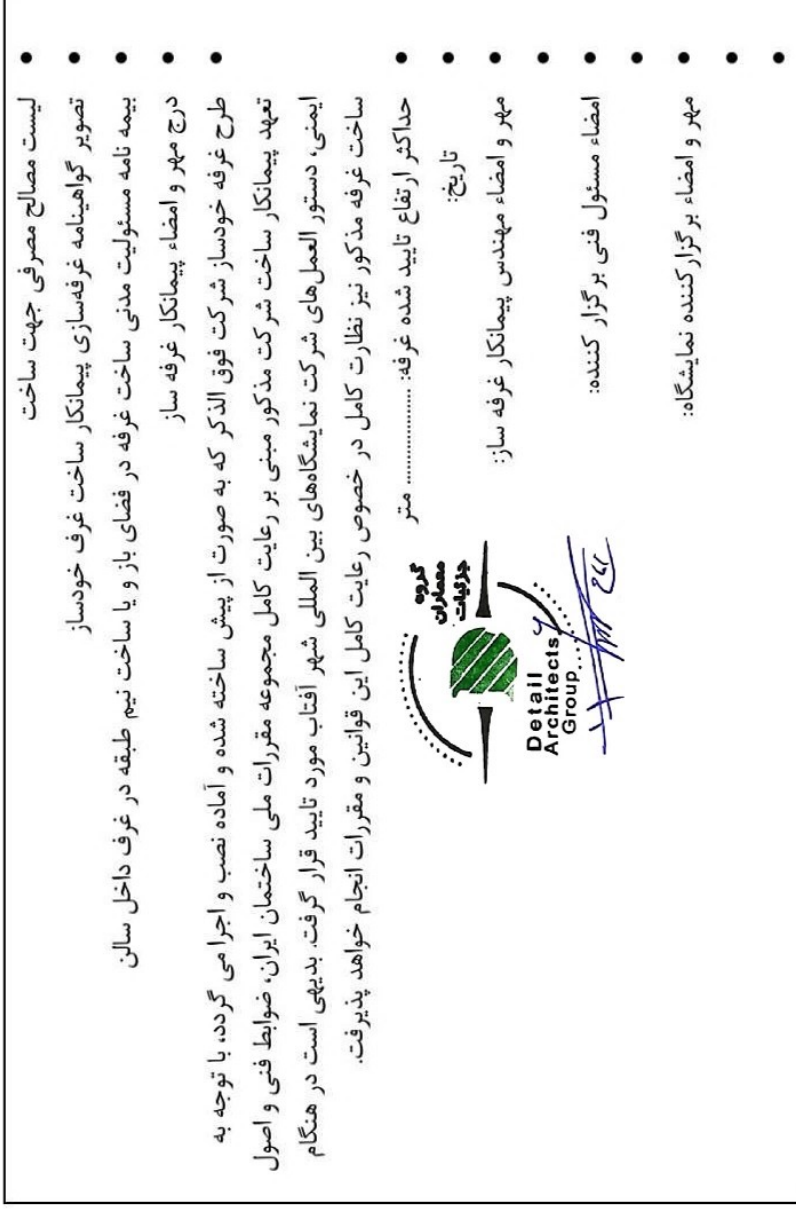 • لیست مصالح مصرفی جهت ساخت
• تصویر گواهینامه غرفه‌سازی پیمانکار ساخت غرف خودساز
• بیمه نامه مسئولیت مدنی ساخت غرفه در فضای باز و یا ساخت نیم طبقه در غرف داخل سالن
• درج مهر و امضاء پیمانکار غرفه ساز
• طرح غرفه خودساز شرکت فوق الذکر که به صورت از پیش ساخته شده و آماده نصب و اجرا می گردد، با توجه به
تعهد پیمانکار ساخت شرکت مذکور مبنی بر رعایت کامل مجموعه مقررات ملی ساختمان ایران، ضوابط فنی و اصول
ایمنی، دستور العمل‌های شرکت نمایشگاه‌های بین المللی شهر آفتاب مورد تایید قرار گرفت. بدیهی است در هنگام
ساخت غرفه مذکور نیز نظارت کامل در خصوص رعایت کامل این قوانین و مقررات انجام خواهد پذیرفت.
• حداکثر ارتفاع تایید شده غرفه: .................... متر
• تاریخ:
• مهر و امضاء مهندس پیمانکار غرفه ساز:
•
• امضاء مسئول فنی برگزار کننده:
•
• مهر و امضاء برگزارکننده نمایشگاه:
•
•
گروه
معماران
جزئیات
Detail
Architects
Group